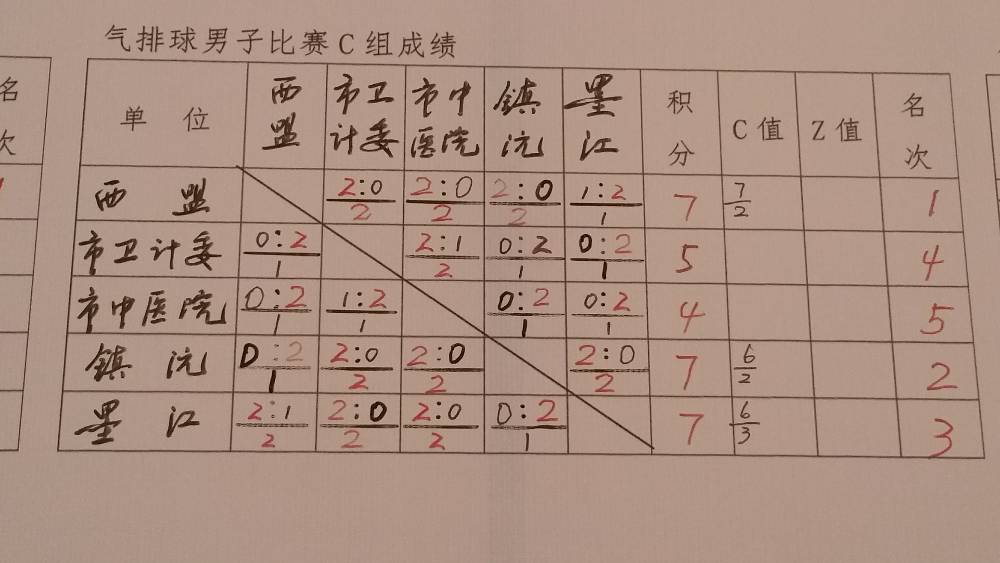 气排球男子比赛C组成绩
单 位 西盟 市卫计委 市中医院 镇沅 墨江 积分 C值 Z值 名次
西盟 2:0/2 2:0/2 2:0/2 1:2/1 7 7/2 1
市卫计委 0:2/1 2:1/2 0:2/1 0:2/1 5 4
市中医院 0:2/1 1:2/1 0:2/1 0:2/1 4 5
镇沅 0:2/1 2:0/2 2:0/2 2:0/2 7 6/2 2
墨江 2:1/2 2:0/2 2:0/2 0:2/1 7 6/3 3
名次